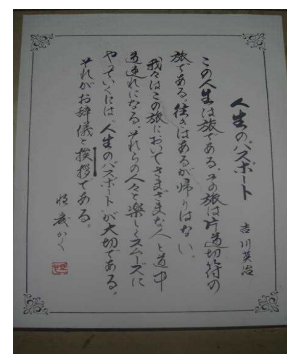 人生のパスポート
吉川英治
この人生は旅である。その旅は片道切符の
旅である。往きはあるが帰りはない。
我々はこの旅においてさまざまな人と道中
道連れになる。それらの人々と楽しくスムーズに
やっていくには、人生のパスポートが大切である。
それがお辞儀と挨拶である。